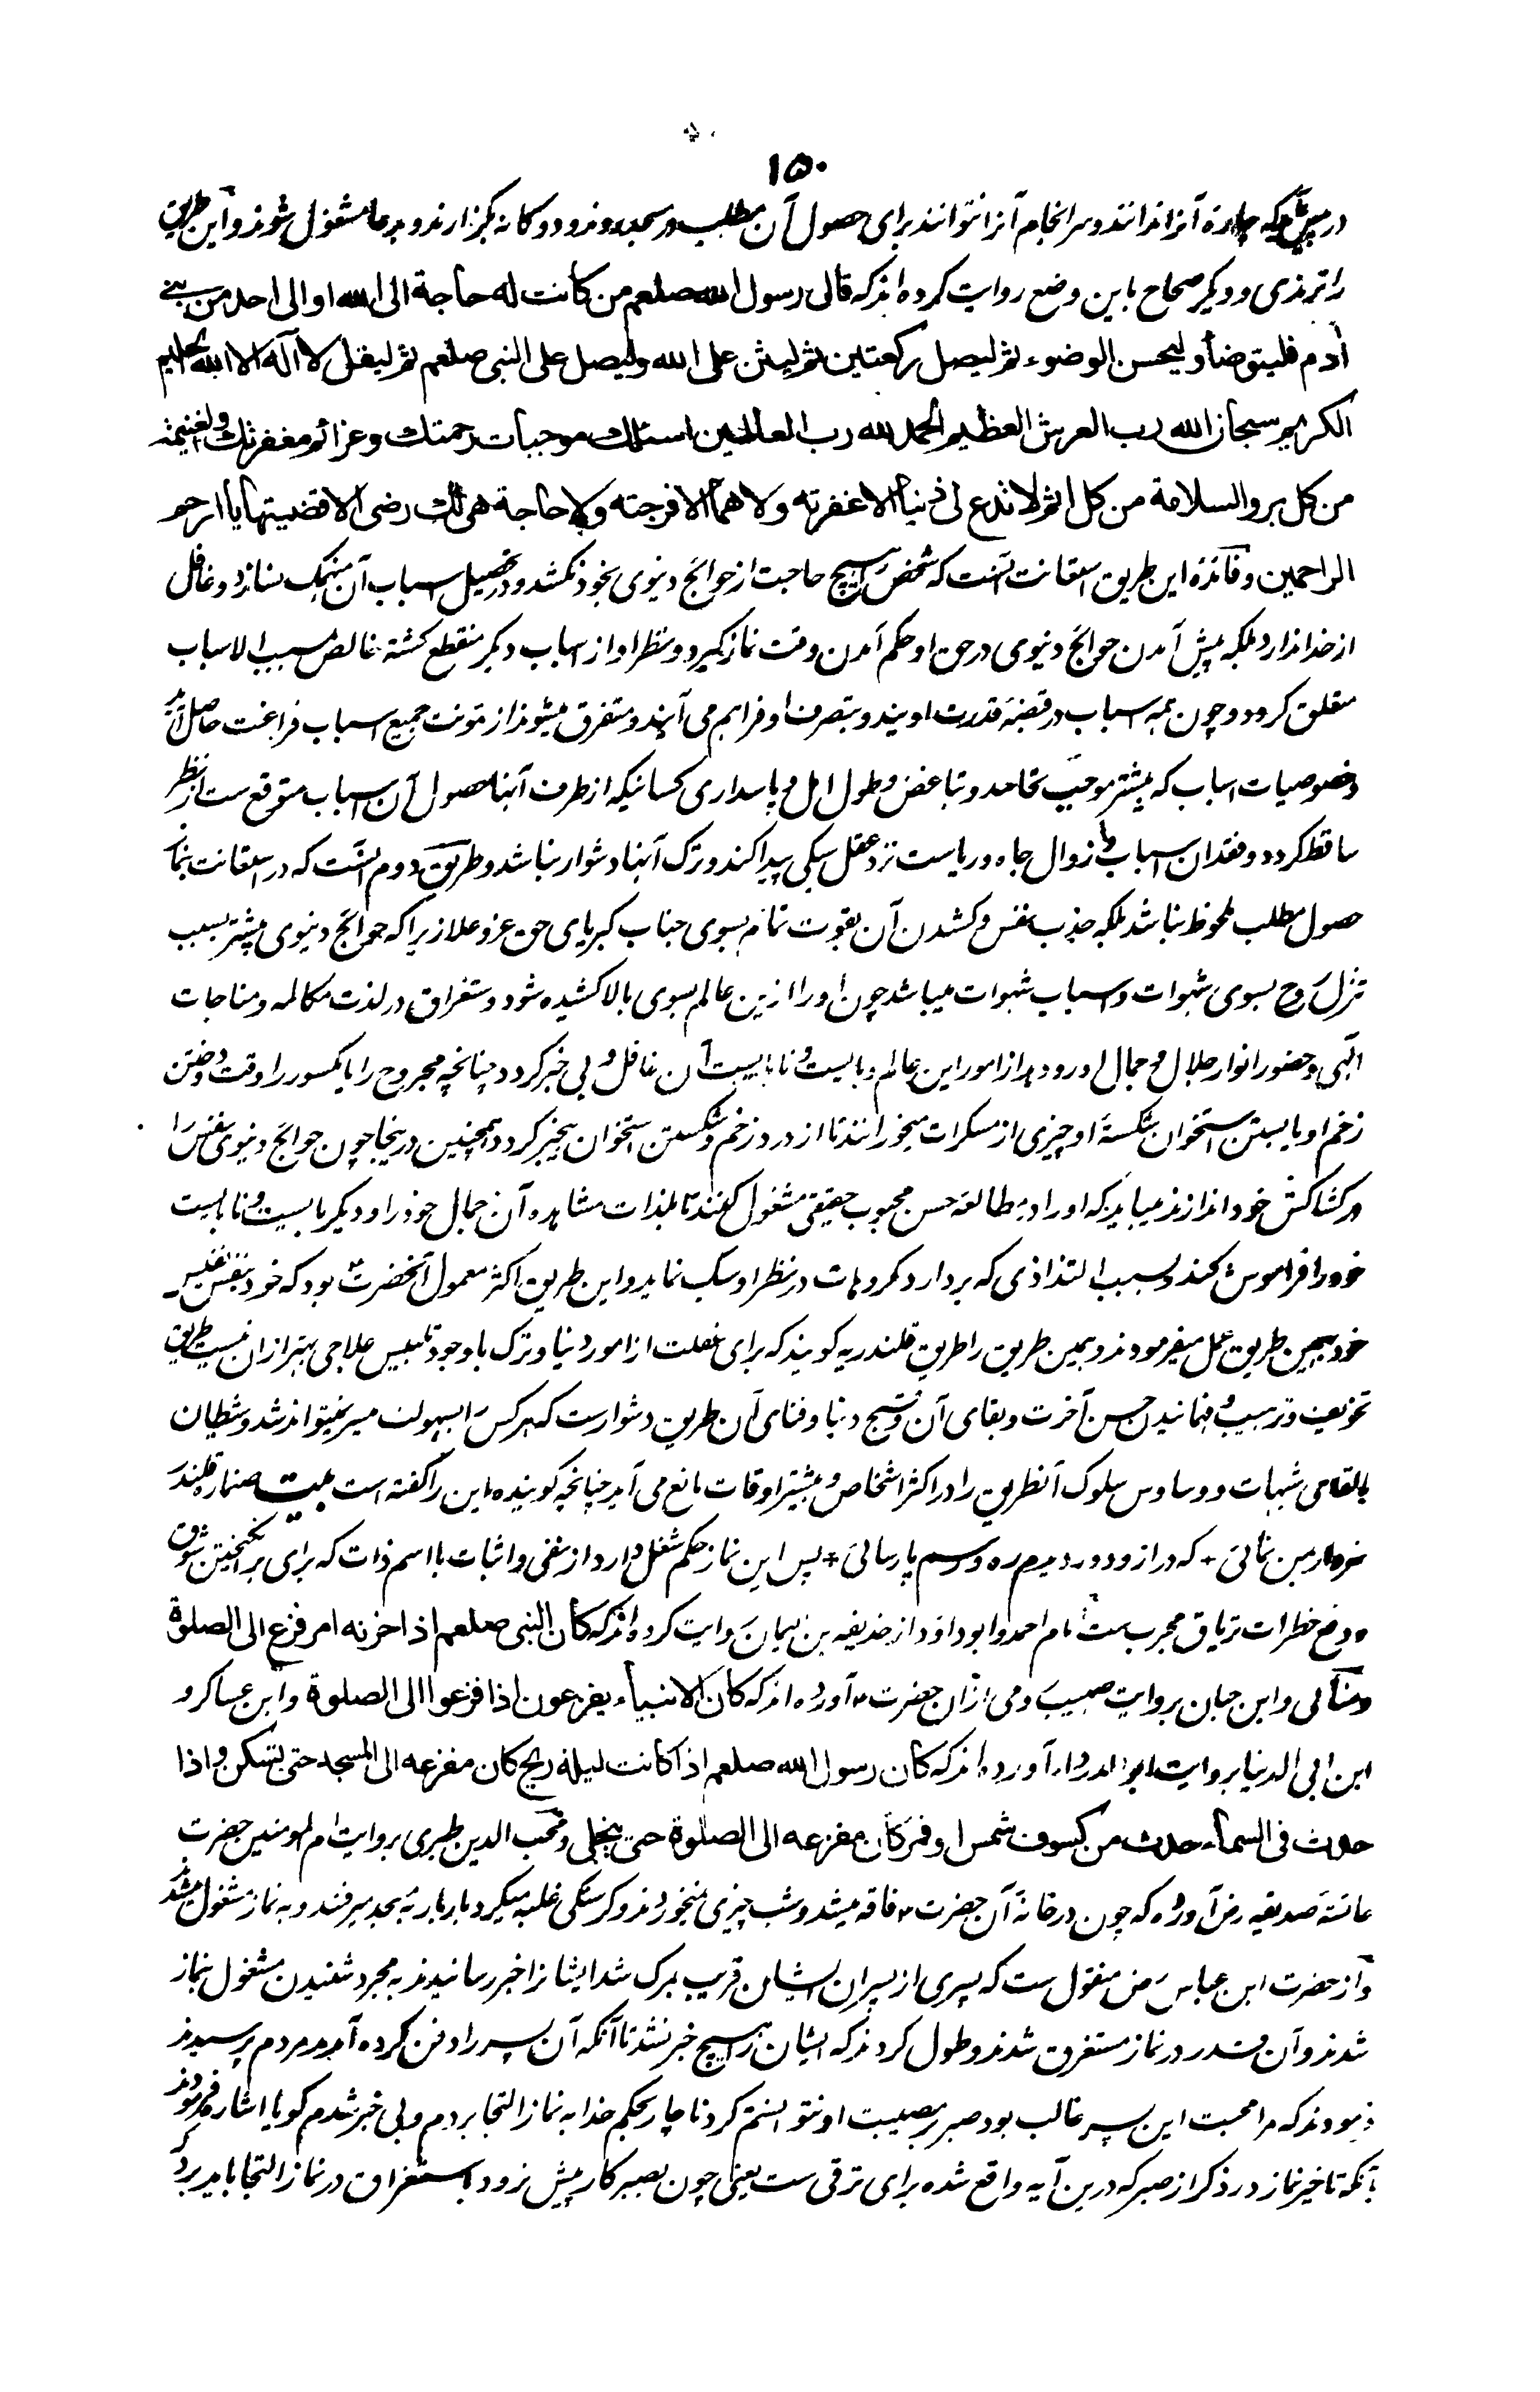 ۱۵۰
در پیش آید که چاره آنرا ندانند و سرانجام آنرا نتوانند برای حصول آن مطلب در مسجد روند و دوگانه بگزارند و بدعا مشغول شوند و این طریق
را ترمذی و دیگر صحاح باین وضع روایت کرده اند که قال رسول الله صلعم من کانت له حاجة الی الله او الی احد من بنے
آدم فلیتوضأ و لیحسن الوضوء ثم لیصل رکعتین ثم لیثن علی الله ولیصل علی النبی صلعم ثم لیقل لا اله الا الله الحلیم
الکریم سبحان الله رب العرش العظیم الحمد لله رب العالمین اسئلك موجبات رحمتك و عزائم مغفرتك و الغنیمة
من کل بر والسلامة من کل اثم لا تدع لی ذنبا الا غفرته ولا هما الا فرجته ولا حاجة هی لك رضی الا قضیتها یا ارحم
الراحمین و فائده این طریق استعانت آنست که شخص هیچ حاجت از حوائج دنیوی بخود نکشد و در تحصیل اسباب آن منهمک نسازد و غافل
از خدا ندارد بلکه پیش آمدن حوائج دنیوی در حق او حکم آمدن وقت نماز گیرد و نظر او از اسباب دیگر منقطع گشته خالص بمسبب الاسباب
متعلق گردد و چون همه اسباب در قبضه قدرت اویند و بتصرف او فراهم می آیند و متفرق میشوند از مئونت جمیع اسباب فراغت حاصل آید
و خصوصیات اسباب که بیشتر موجب تحاسد و تباغض و طول امل و پاسداری کسانیکه از طرف آنها حصول آن اسباب متوقع ست از نظر
ساقط گردد و فقدان اسباب و زوال جاه و ریاست نزد عقل سبکی پیدا کند و ترک آنها دشوار نباشد و طریق دوم آنست که در استعانت بنماز
حصول مطلب ملحوظ نباشد بلکه جذب نفس و کشیدن آن بقوت تمام بسوی جناب کبریای حق عز و علا زیرا که حوائج دنیوی بیشتر بسبب
تنزل روح بسوی شهوات و اسباب شهوات میباشد چون او را ازین عالم بسوی بالا کشیده شود و مستغرق در لذت مکالمه و مناجات
الهی و حضور انوار جلال و جمال او رو دهد از امور این عالم و بایست و نابایست آن غافل و بی خبر گردد چنانچه مجروح را یا مکسور را وقت دوختن
زخم او یا بستن استخوان شکسته او چیزی از مسکرات میخورانند تا از درد زخم و شکستن استخوان بیخبر گردد همچنین درینجا چون حوائج دنیوی نفس را
در کشاکش خود اندازند میباید که او را به مطالعه حسن محبوب حقیقی مشغول کنند تا بلذات مشاهده آن جمال خود را و دیگر بایست و نابایست
خود را فراموش کند و بسبب التذاذی که بردارد مکروهات در نظر او سبک نماید و این طریق اکثر معمول آنحضرت بود که خود بنفس نفیس
خود بهمین طریق عمل میفرمودند و همین طریق را طریق قلندریه گویند که برای غفلت از امور دنیا و ترک باوجود تلبیس علاجی بهتر ازان نیست طریق
تخویف و ترهیب و فهمانیدن حسن آخرت و بقای آن و قبح دنیا و فنای آن طریق دشوارست که هرکس را بسهولت میسر نمیتواند شد و شیطان
بالقای شبهات و وساوس سلوک آنطریق را در اکثر اشخاص و بیشتر اوقات مانع می آید چنانچه گوینده این را گفته است بیت صنما ره قلندر
سزد ار بمن نمائی + که دراز و دور دیدم ره و رسم پارسائی + پس این نماز حکم شغل دارد از نفی و اثبات یا اسم ذات که برای برانگیختن شوق
و دفع خطرات تریاق مجرب ست امام احمد و ابوداود از حذیفه بن یمان روایت کرده اند که کان النبی صلعم اذا حزنه امر فزع الی الصلوة
و نسائی و ابن حبان بروایت صهیب رومی از آن حضرت آورده اند که کان الانبیاء یفزعون اذا فزعوا الی الصلوة و ابن عساکر و
ابن ابی الدنیا بروایت ابو الدرداء آورده اند که کان رسول الله صلعم اذا کانت لیلة ریح کان مفزعه الی المسجد حتی تسکن و اذا
حدث فی السماء حدث من کسوف شمس او قمر کان مفزعه الی الصلوة حتی ینجلی و محب الدین طبری بروایت ام المومنین حضرت
عائشه صدیقه رض آورده که چون در خانه آن حضرت فاقه میشد و شب چیزی نمیخوردند و گرسنگی غلبه میکرد بار بار به مسجد میرفتند و به نماز مشغول میشدند
و از حضرت ابن عباس رض منقول ست که پسری از پسران ایشان قریب بمرگ شد ایشانرا خبر رسانیدند به مجرد شنیدن مشغول بنماز
شدند و آن قدر در نماز مستغرق شدند و طول کردند که ایشان را هیچ خبر نشد تا آنکه آن پسر را دفن کرده آمدند مردم پرسیدند
فرمودند که مرا محبت این پسر غالب بود صبر بر مصیبت او نتوانستم کرد ناچار بحکم خدا به نماز التجا بردم و بی خبر شدم گویا اشاره فرمودند
بآنکه تاخیر نماز در ذکر از صبر که درین آیه واقع شده برای ترقی ست یعنی چون بصبر کار پیش نرود باستغراق در نماز التجا باید برد